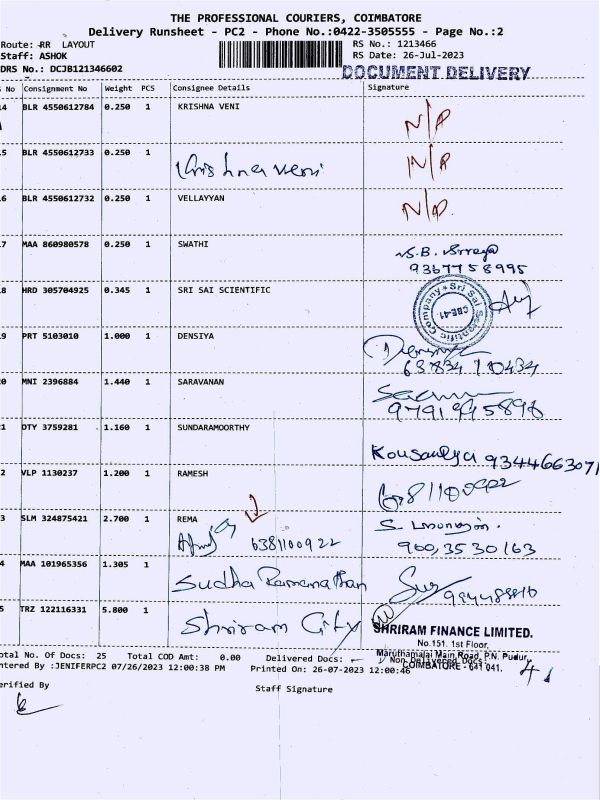 THE PROFESSIONAL COURIERS, COIMBATORE
Delivery Runsheet - PC2 - Phone No.:0422-3505555 - Page No.:2
Route: RR LAYOUT RS No.: 1213466
Staff: ASHOK RS Date: 26-Jul-2023
DRS No.: DCJB121346602 DOCUMENT DELIVERY
No Consignment No Weight PCS Consignee Details Signature
14 BLR 4550612784 0.250 1 KRISHNA VENI N/A
5 BLR 4550612733 0.250 1 Krishna veni N/A
6 BLR 4550612732 0.250 1 VELLAYYAN N/A
7 MAA 860980578 0.250 1 SWATHI
9367758995
8 HRD 305704925 0.345 1 SRI SAI SCIENTIFIC Sri Sai Scientific Company CBE-41
9 PRT 5103010 1.000 1 DENSIYA
0 MNI 2396884 1.440 1 SARAVANAN
1 OTY 3759281 1.160 1 SUNDARAMOORTHY
Kousalya 9344663071
2 VLP 1130237 1.200 1 RAMESH 6381100922
3 SLM 324875421 2.700 1 REMA
6381100922 9003530163
4 MAA 101965356 1.305 1 Sudha Ramanathan
5 TRZ 122116331 5.800 1 Shriram City
SHRIRAM FINANCE LIMITED.
No.151, 1st Floor,
Maruthamalai Main Road, P.N. Pudur,
COIMBATORE - 641 041.
otal No. Of Docs: 25 Total COD Amt: 0.00 Delivered Docs: Non Delivered Docs:
ntered By :JENIFERPC2 07/26/2023 12:00:38 PM Printed On: 26-07-2023 12:00:46
erified By Staff Signature